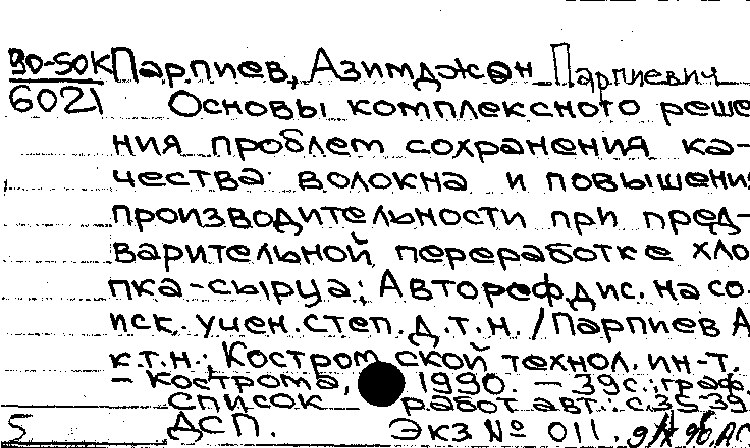 90-50К Парпиев, Азимджон Парпиевич
6021 Основы комплексного реше
ния проблем сохранения ка-
чества волокна и повышени
производительности при пред-
варительной переработке хло
пка-сырца: Автореф. дис. на со.
иск. учен. степ. д.т.н. / Парпиев А
к.т.н.; Костром ской технол. ин-т.
- Кострома, 1990. - 39с.: граф.
список работ авт.: с.35-39
5 ДСП. Экз № 011.